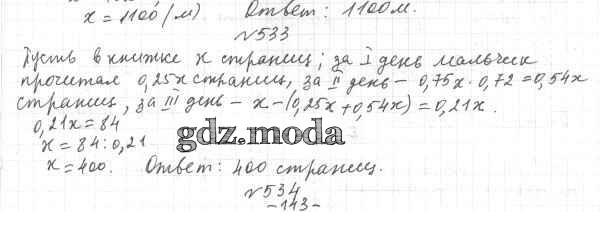 x = 1100 (м) Ответ: 1100 м.
№533
Пусть в книжке x страниц; за I день мальчик
прочитал 0,25x страниц, за II день – 0,75x · 0,72 = 0,54x
страниц, за III день – x – (0,25x + 0,54x) = 0,21x.
0,21x = 84
x = 84 : 0,21
x = 400. Ответ: 400 страниц.
gdz.moda
№534
-143-